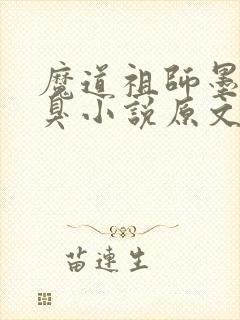 魔道祖師墨
臭小説原文
苗連生